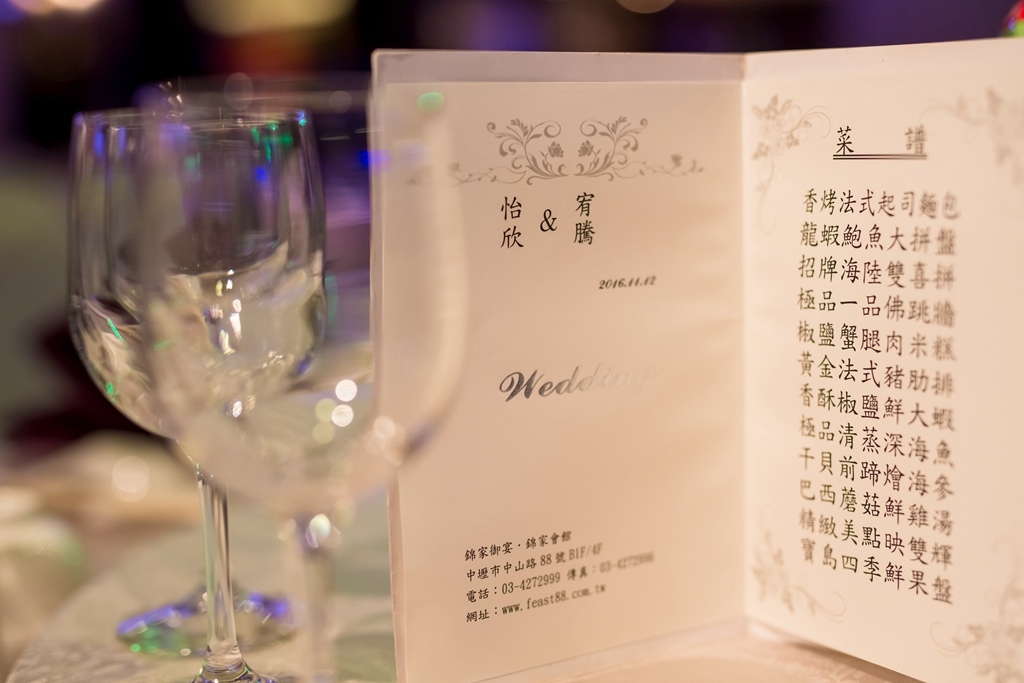 怡欣 & 宥騰
2016.11.12
Wedding
錦家御宴·錦家會館
中壢市中山路 88 號 B1F/4F
電話：03-4272999 傳真：03-4272998
網址：www.feast88.com.tw
菜 譜
香烤法式起司麵包
龍蝦鮑魚大拼盤
招牌海陸雙喜拼
極品一品佛跳牆
椒鹽蟹腿肉米糕
黃金法式豬肋排
香酥椒鹽鮮大蝦
極品清蒸深海魚
干貝前蹄燴海參
巴西蘑菇鮮雞湯
精緻美點映雙輝
寶島四季鮮果盤